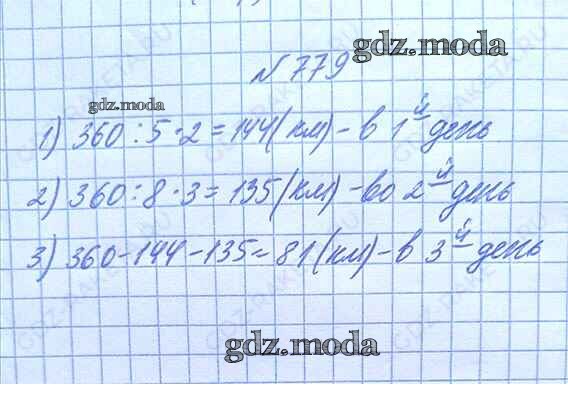 gdz.moda
№779
gdz.moda
1) 360 : 5 · 2 = 144 (км) - в 1й день
2) 360 : 8 · 3 = 135 (км) - во 2й день
3) 360 - 144 - 135 = 81 (км) - в 3й день
gdz.moda